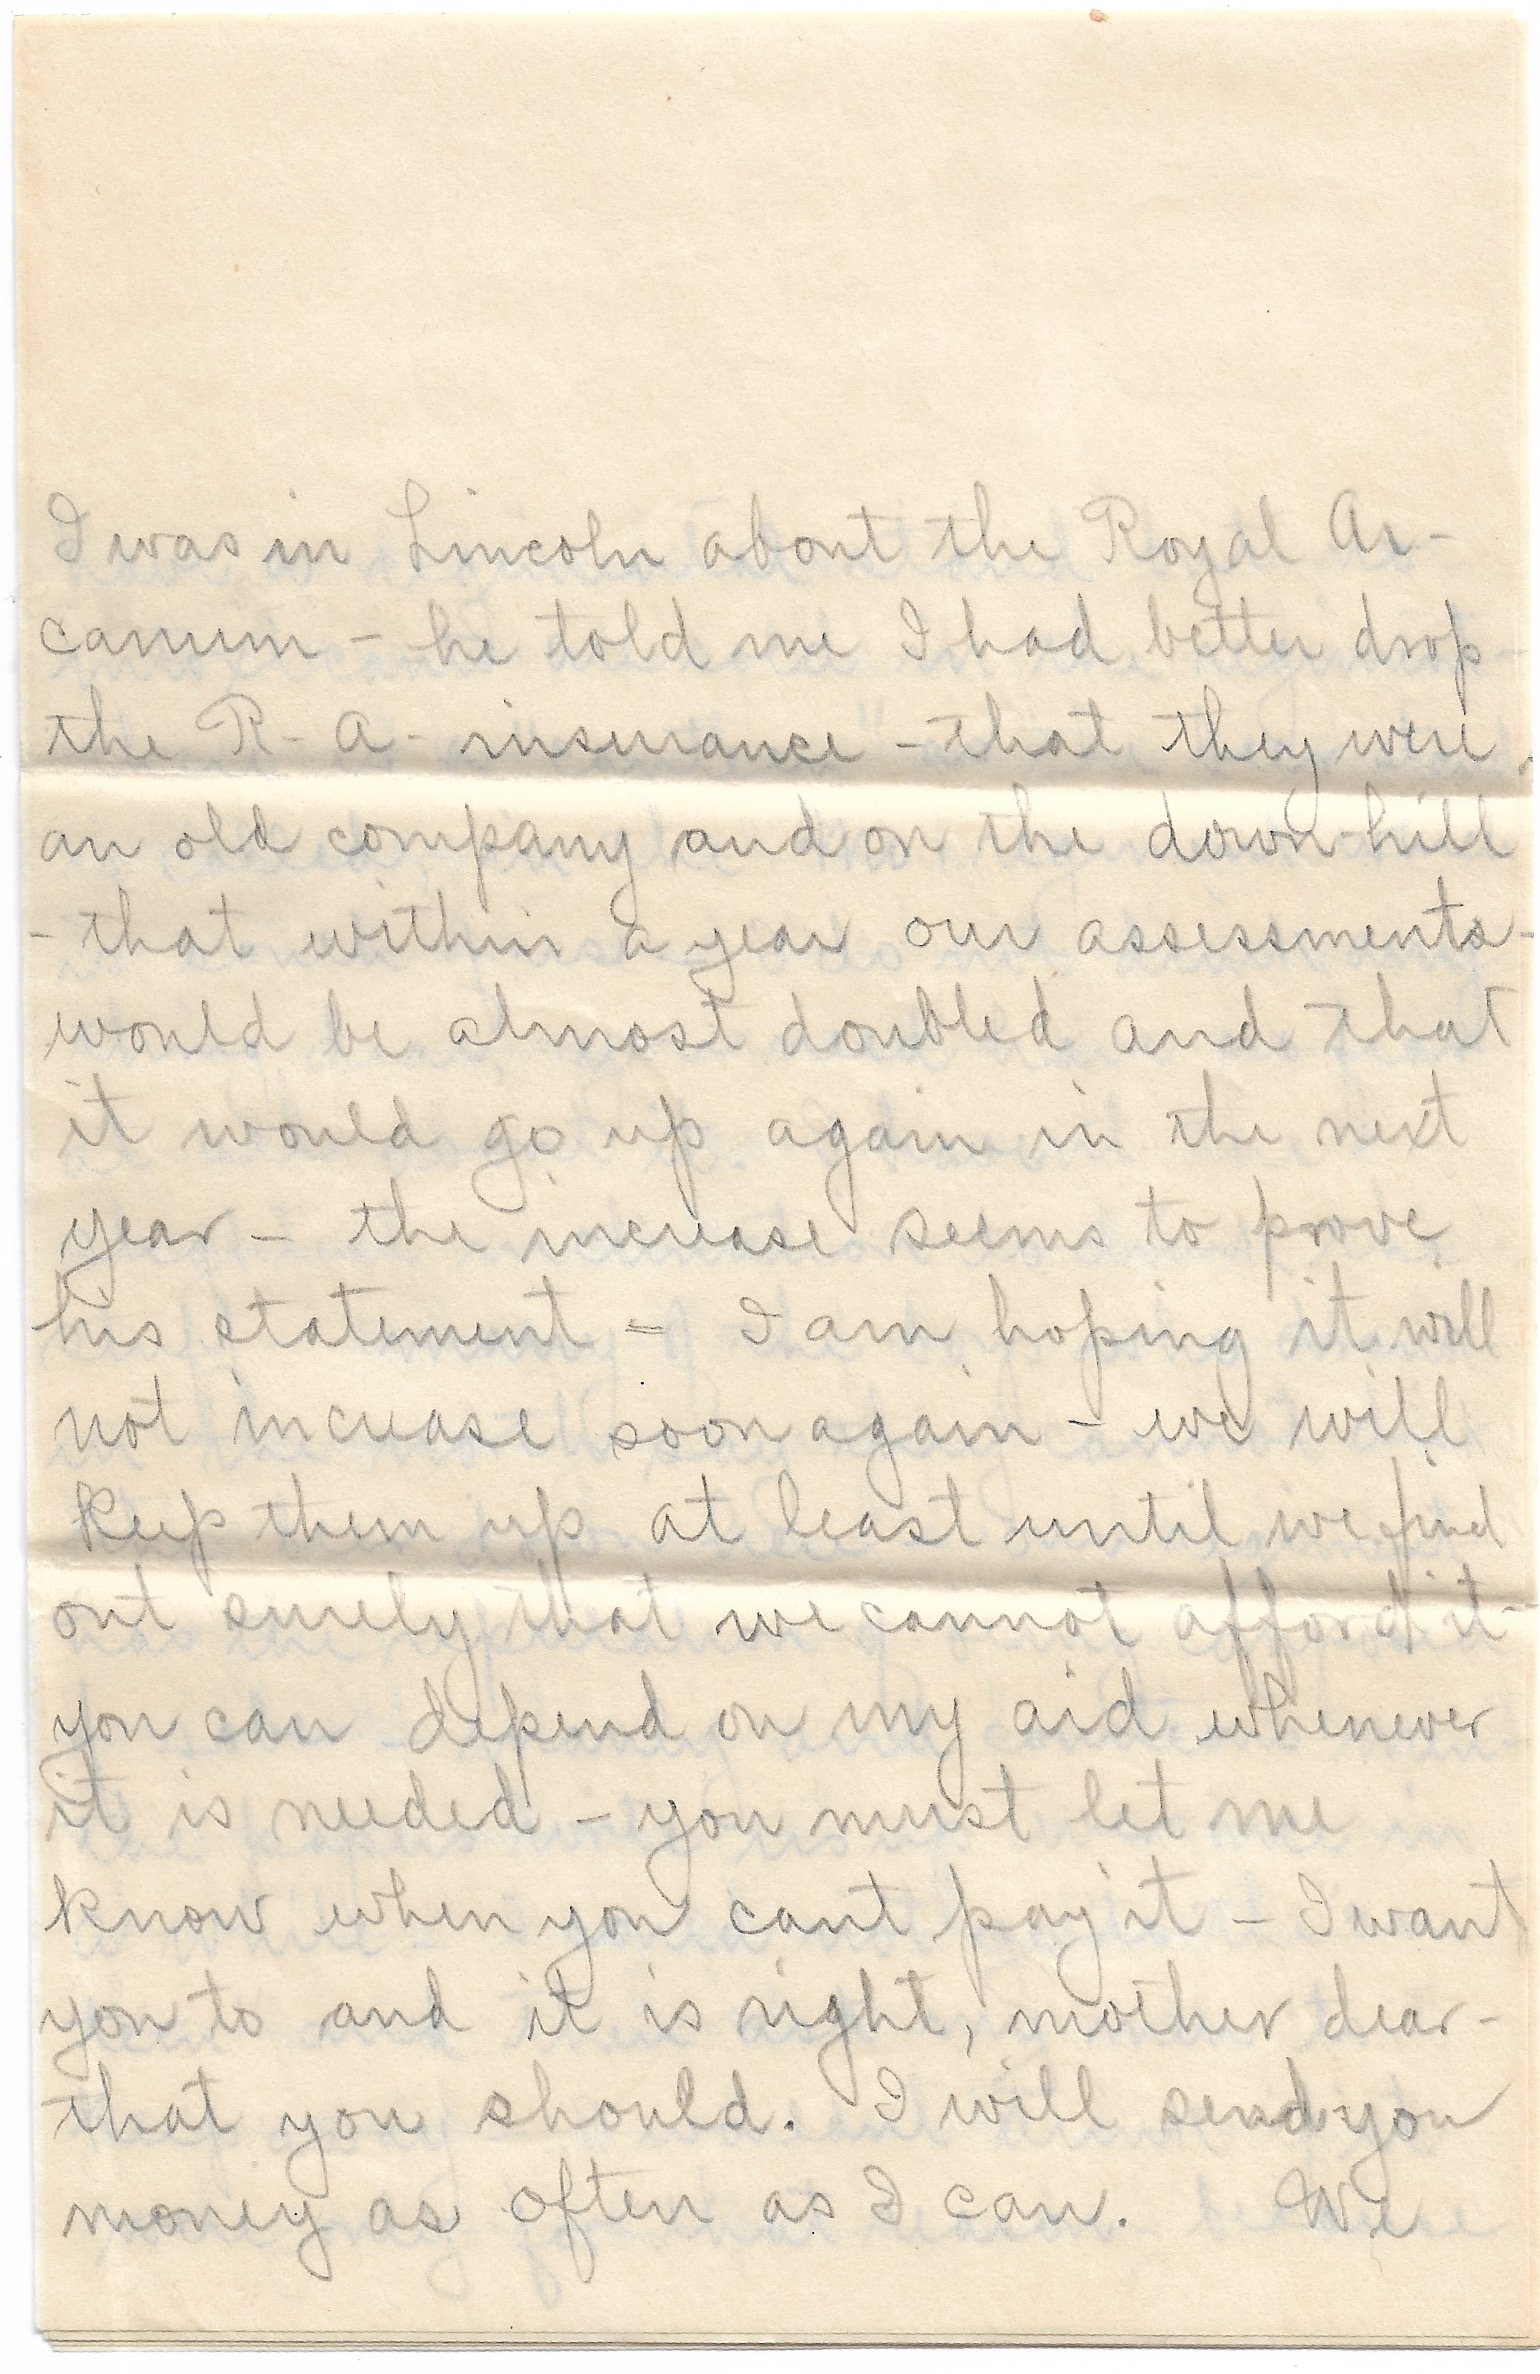 I was in Lincoln about the Royal Ar-
canum - he told me I had better drop
the R- A- insurance - that they were
an old company and on the down-hill
- that within a year our assessments -
would be almost doubled and that
it would go up again in the next
year - the increase seems to prove
his statement = I am hoping it will
not increase soon again - we will
keep them up at least until we find
out surely that we cannot afford it -
you can depend on my aid whenever
it is needed - you must let me
know when you cant pay it - I want
you to and it is right, mother dear -
that you should. I will send you
money as often as I can. We